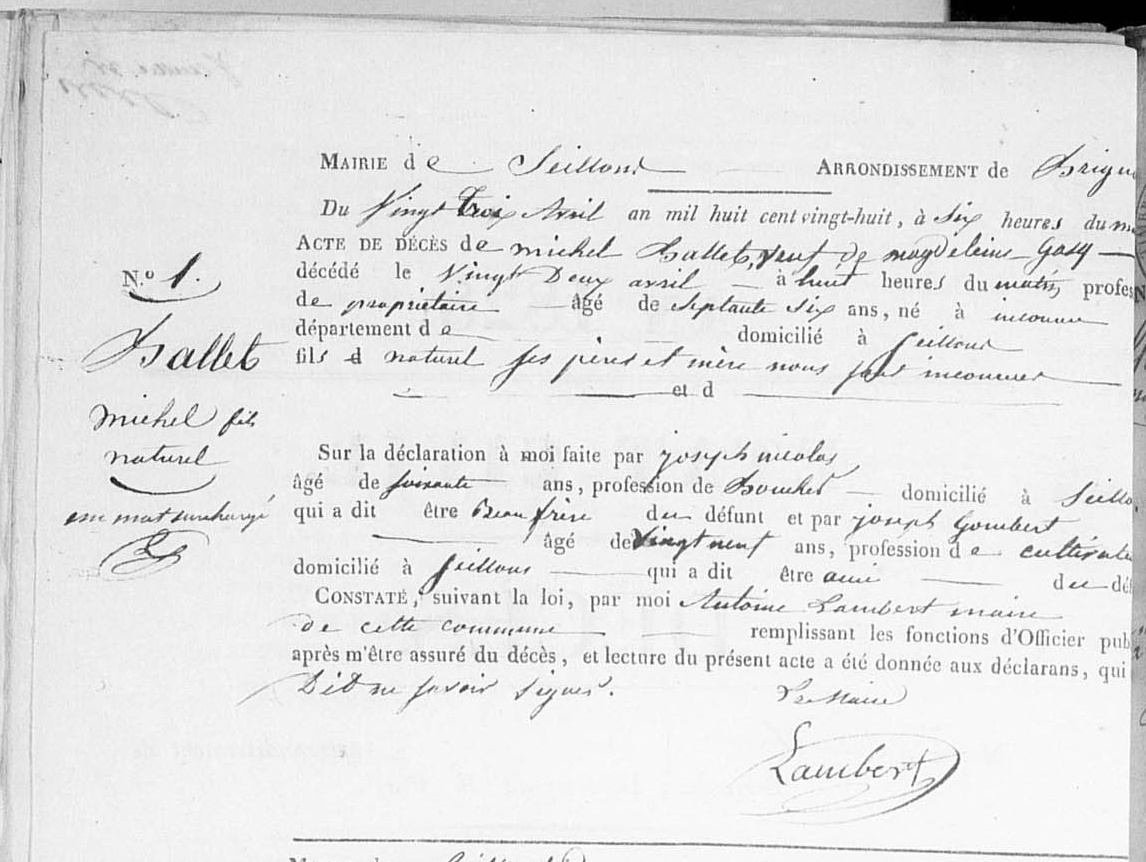 MAIRIE de Seillons ARRONDISSEMENT de Brign
Du Vingt Trois Avril an mil huit cent vingt-huit, à Six heures du m
ACTE DE DÉCÈS de michel Ballet, veuf de magdeleine Gasq
N.º 1.
décédé le Vingt Deux avril à huit heures du matin, profes
de propriétaire âgé de Septante Six ans, né à inconnu
Ballet
département de domicilié à Seillons
fils d naturel ses père et mère nous sont inconnues
et d
michel fils
naturel
Sur la déclaration à moi faite par joseph nicolas
âgé de soixante ans, profession de domicilié à Seillo
un mot surchargé
qui a dit être Beau frère du défunt et par joseph Gombert
âgé de Vingt neuf ans, profession de cultivate
domicilié à Seillons qui a dit être ami du déf
CONSTATÉ, suivant la loi, par moi Antoine Lambert maire
de cette commune remplissant les fonctions d'Officier pub
après m'être assuré du décès, et lecture du présent acte a été donnée aux déclarans, qui
Dit ne savoir signer.
Le Maire
Lambert